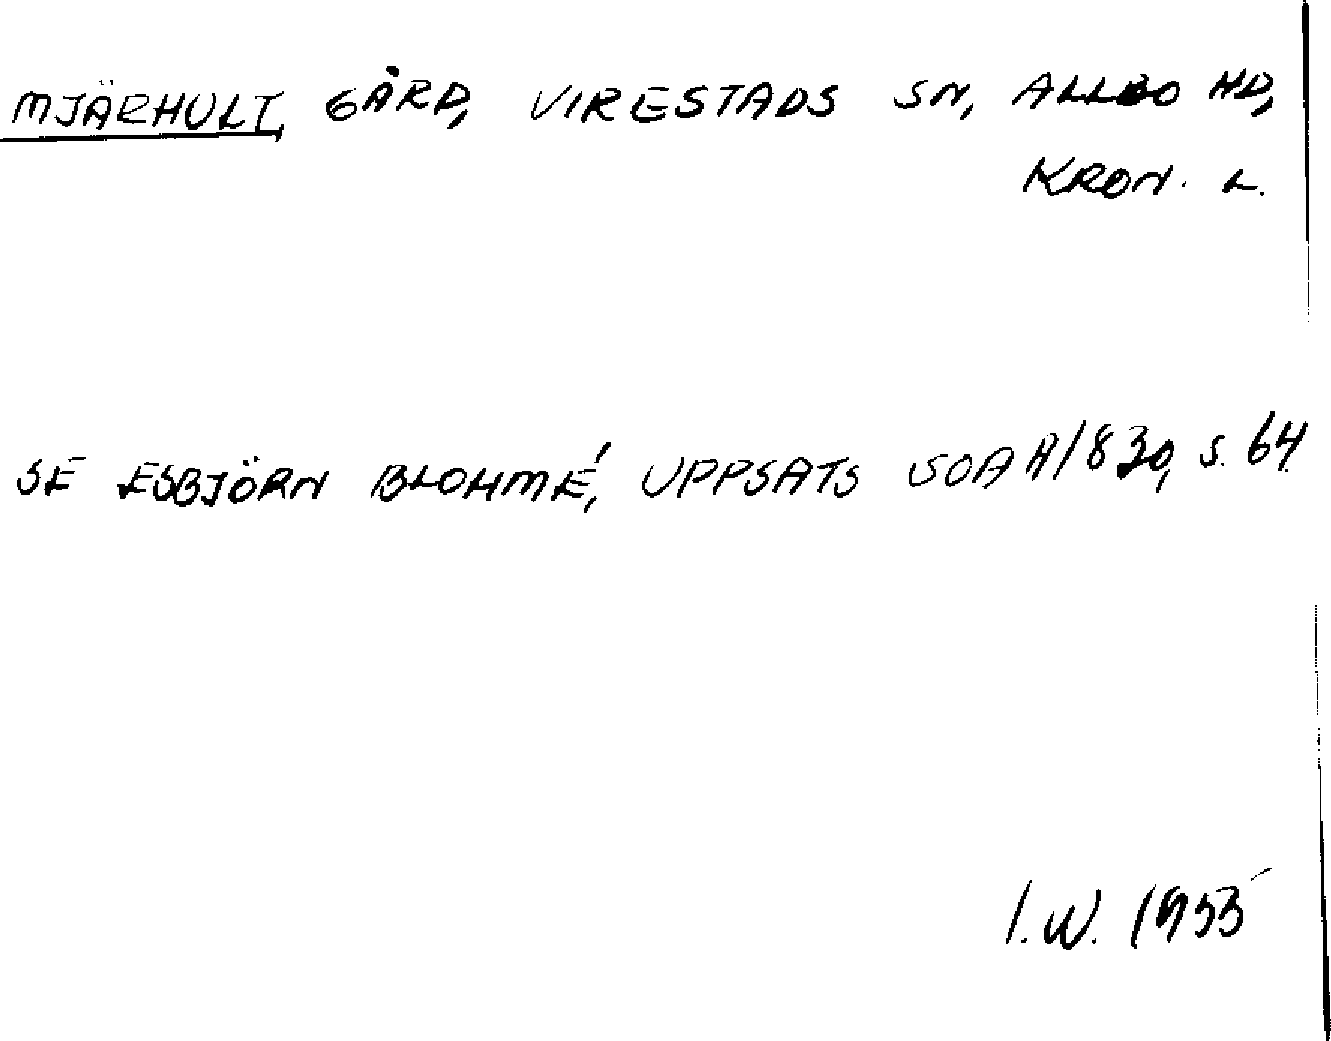 MJÄRHULT, GÅRD, VIRESTADS SN, ALLBO HD,
KRON. L.
SE ESBJÖRN BLOHMÉ, UPPSATS SOAH/830, S. 64
I.W. 1955